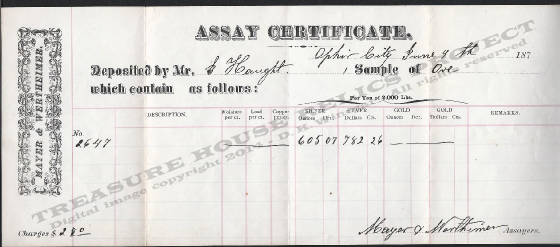 ASSAY CERTIFICATE.
Ophir City, June 9th 187
Deposited by Mr. S Haught. 1 Sample of Ore
which contain as follows:
For Ton of 2,000 Lbs.
MAYER & WERTHEIMER.
No DESCRIPTION. Moisture per ct. Lead per ct. Copper per ct. SILVER Ounces Dec. SILVER Dollars Cts. GOLD Ounces Dec. GOLD Dollars Cts. REMARKS.
2647 605 07 782 26
Charges $ 2.80
Mayer & Wertheimer Assayers.
TREASURE HOUSE RELICS PROJECT
Digital image copyright 2011 - D.K. reserved